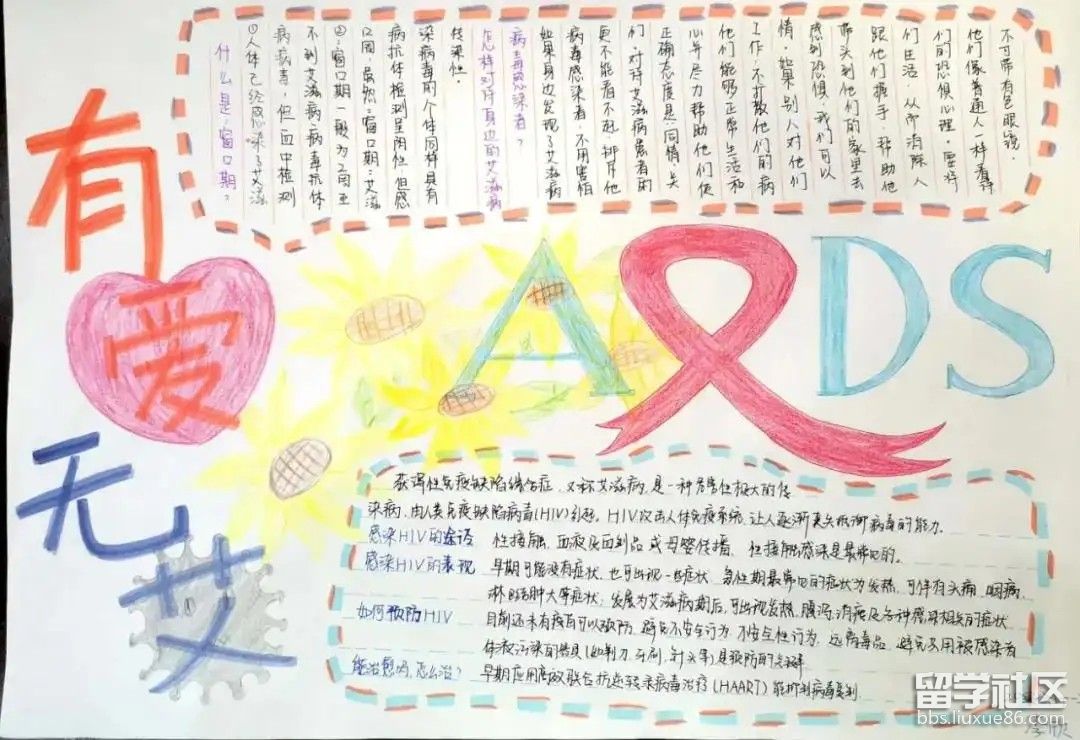 有
爱
无
艾
什么是:窗口期?
①人体已经感染了艾滋
病病毒,但血中检测
不到艾滋病病毒抗体
②:窗口期一般为2周至
12周,虽然:窗口期:艾滋
病抗体检测呈阴性,但感
染病毒的个体同样具有
传染性。
怎样对待身边的艾滋病
病毒感染者?
如果身边发现了艾滋病
病毒感染者,不用害怕
更不能看不起、排斥他
们,对待艾滋病患者的
正确态度是:同情、关
心并尽力帮助他们,使
他们能够正常生活和
工作,不打散他们的病
情,如果别人对他们
感到恐惧,我们可以
带头到他们的家里去
跟他们握手,帮助他
们生活,从而消除人
们的恐惧心理,要将
他们像普通人一样看待
不可带有色眼镜。
AIDS
获得性免疫缺陷综合症,又称艾滋病,是一种危害性极大的传
染病,由人类免疫缺陷病毒(HIV)引起。HIV攻击人体免疫系统,让人逐渐丧失抵御病毒的能力。
感染HIV的途径 性接触、血液及血制品或母婴传播、性接触感染是最常见的。
感染HIV的表现 早期可能没有症状,也可出现一些症状。急性期最常见的症状为发热,可伴有头痛、咽痛、
淋巴结肿大等症状;发展为艾滋病期后,可出现发热、腹泻、消瘦及各种感染相关的症状
如何预防HIV 目前还未有疫苗可以预防,避免不安全行为、不安全性行为,远离毒品,避免共用被感染者
体液污染的器具(如剃刀、牙刷、针头等)是预防的关键
能治愈吗,怎么治? 早期应用高效联合抗逆转录病毒治疗(HAART)能抑制病毒复制
留学社区
bbs.liuxue86.com